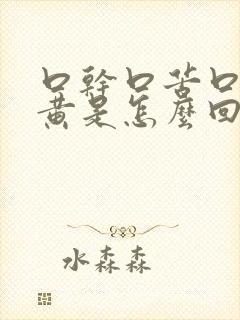 口幹口苦口
黃是怎麼回
水森森